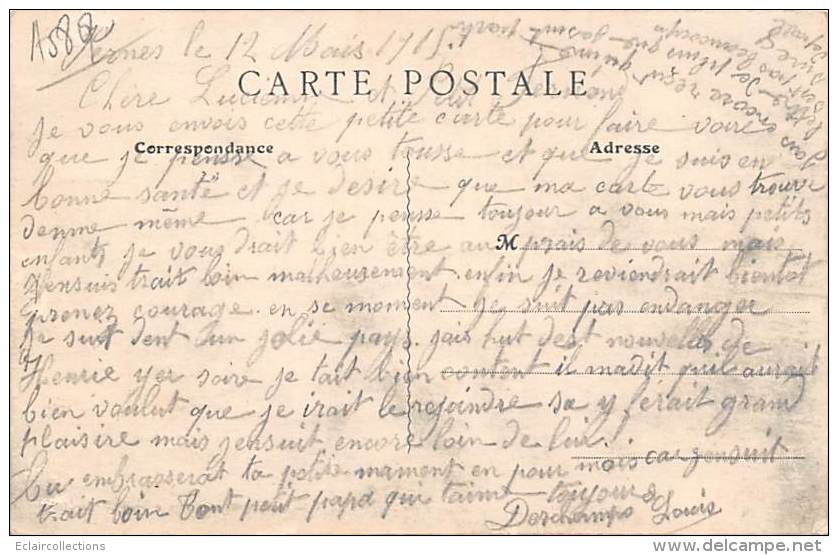 A588
le 12 Mais 1915
CARTE POSTALE
Chère Lucienne et
Je vous envois cette petite carte pour faire voire
Correspondance
Adresse
que je pensse a vous tousse et que je suis en
bonne santé et je desire que ma carte vous trouve
denme même car je pensse toujour a vous mais petits
enfants je vous drait bien être au prais de vous mais
M
jensuis trait loin malheusement enfin je reviendrait bientot
prenez courage en se moment je suit pas endanger
Je suit dent un jolie pays jais hut dest nouvelles de
Henrie yer soire je tait bien content il madit quil aurait
bien voulut que je irait le rejoindre sa y ferait grand
plaisire mais jensuit encore loin de lui
tu embrasserat ta petite mament en pour mois car jensuit
trait loin Tont petit papa qui taime toujour
Deschamps Louis
Eclaircollections
http://www.delcampe.net